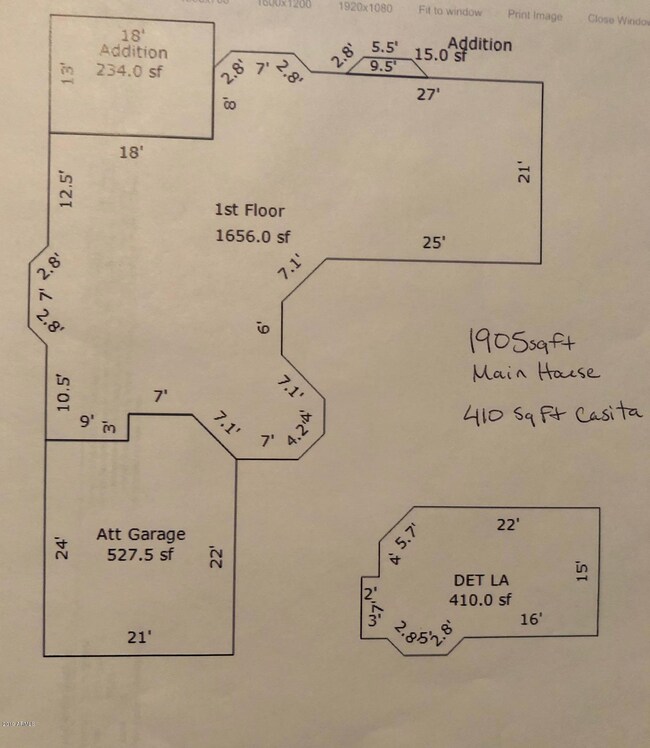 1600x1200
1920x1080
Fit to window
Print Image
Close Window
18'
Addition
234.0 sf
13'
18'
2.8'
7'
2.8'
8'
2.8'
5.5'
9.5'
Addition
15.0 sf
27'
21'
12.5'
1st Floor
1656.0 sf
25'
7.1'
2.8'
7'
2.8'
6'
1905 sqft
Main House
410 Sq Ft Casita
10.5'
7'
7.1'
9'
3'
7.1'
7'
4.2'
4'
24'
Att Garage
527.5 sf
22'
21'
22'
5.7'
4'
15'
DET LA
410.0 sf
2'
7'
3'
2.8'
5'
2.8'
16'